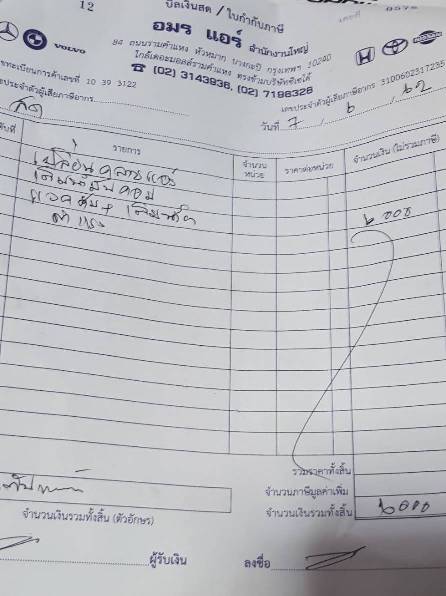 12
บิลเงินสด / ใบกำกับภาษี
เลขที่
VOLVO
อมร แอร์ สำนักงานใหญ่
84 ถนนรามคำแหง หัวหมาก บางกะปิ กรุงเทพฯ 10240
ใกล้เดอะมอลล์รามคำแหง ตรงข้ามบริษัทซิตี้
☎ (02) 3143936, (02) 7186328
ทะเบียนการค้าเลขที่ 10 39 3122
เลขประจำตัวผู้เสียภาษีอากร 3100602317235
ประจำตัวผู้เสียภาษีอากร
สด
วันที่ 7 / ๖ / ๖๒
รายการ
จำนวนหน่วย
ราคาต่อหน่วย
จำนวนเงิน (ไม่รวมภาษี)
เปลี่ยนคลายแอร์
เติมน้ำมันคอม
๖ 000
ค่าแรง
รวมราคาทั้งสิ้น
จำนวนภาษีมูลค่าเพิ่ม
จำนวนเงินรวมทั้งสิ้น (ตัวอักษร)
จำนวนเงินรวมทั้งสิ้น
๖000
ผู้รับเงิน
ลงชื่อ